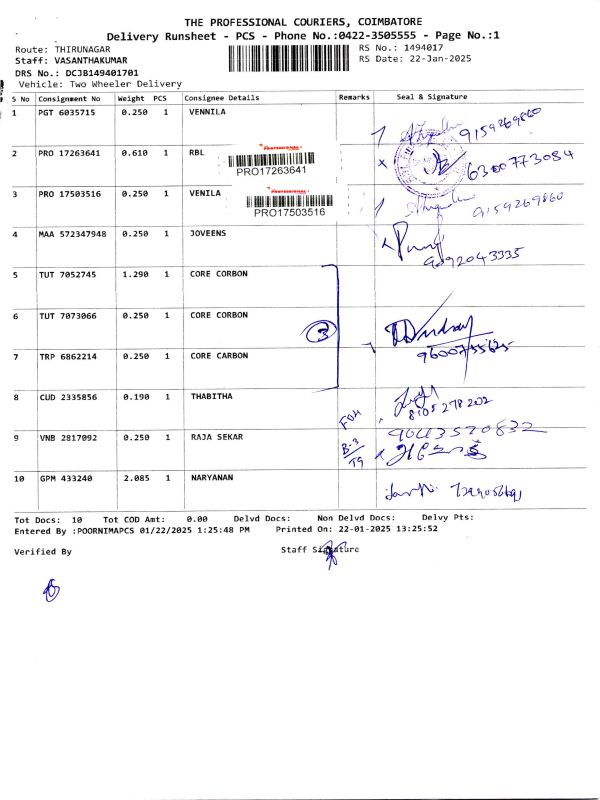 THE PROFESSIONAL COURIERS, COIMBATORE
Delivery Runsheet - PCS - Phone No.:0422-3505555 - Page No.:1
Route: THIRUNAGAR
RS No.: 1494017
Staff: VASANTHAKUMAR
RS Date: 22-Jan-2025
DRS No.: DCJB149401701
Vehicle: Two Wheeler Delivery
S No Consignment No Weight PCS Consignee Details Remarks Seal & Signature
1 PGT 6035715 0.250 1 VENNILA
9159269860
2 PRO 17263641 0.610 1 RBL
PRO17263641
6300773084
3 PRO 17503516 0.250 1 VENILA
PRO17503516
9159269860
4 MAA 572347948 0.250 1 JOVEENS
9092043335
5 TUT 7052745 1.290 1 CORE CORBON
6 TUT 7073066 0.250 1 CORE CORBON
3
7 TRP 6862214 0.250 1 CORE CARBON
8 CUD 2335856 0.190 1 THABITHA
8105278202
9 VNB 2817092 0.250 1 RAJA SEKAR
B-3
T9
9043520832
10 GPM 433240 2.085 1 NARYANAN
Tot Docs: 10 Tot COD Amt: 0.00 Delvd Docs: Non Delvd Docs: Delvy Pts:
Entered By :POORNIMAPCS 01/22/2025 1:25:48 PM Printed On: 22-01-2025 13:25:52
Verified By Staff Signature